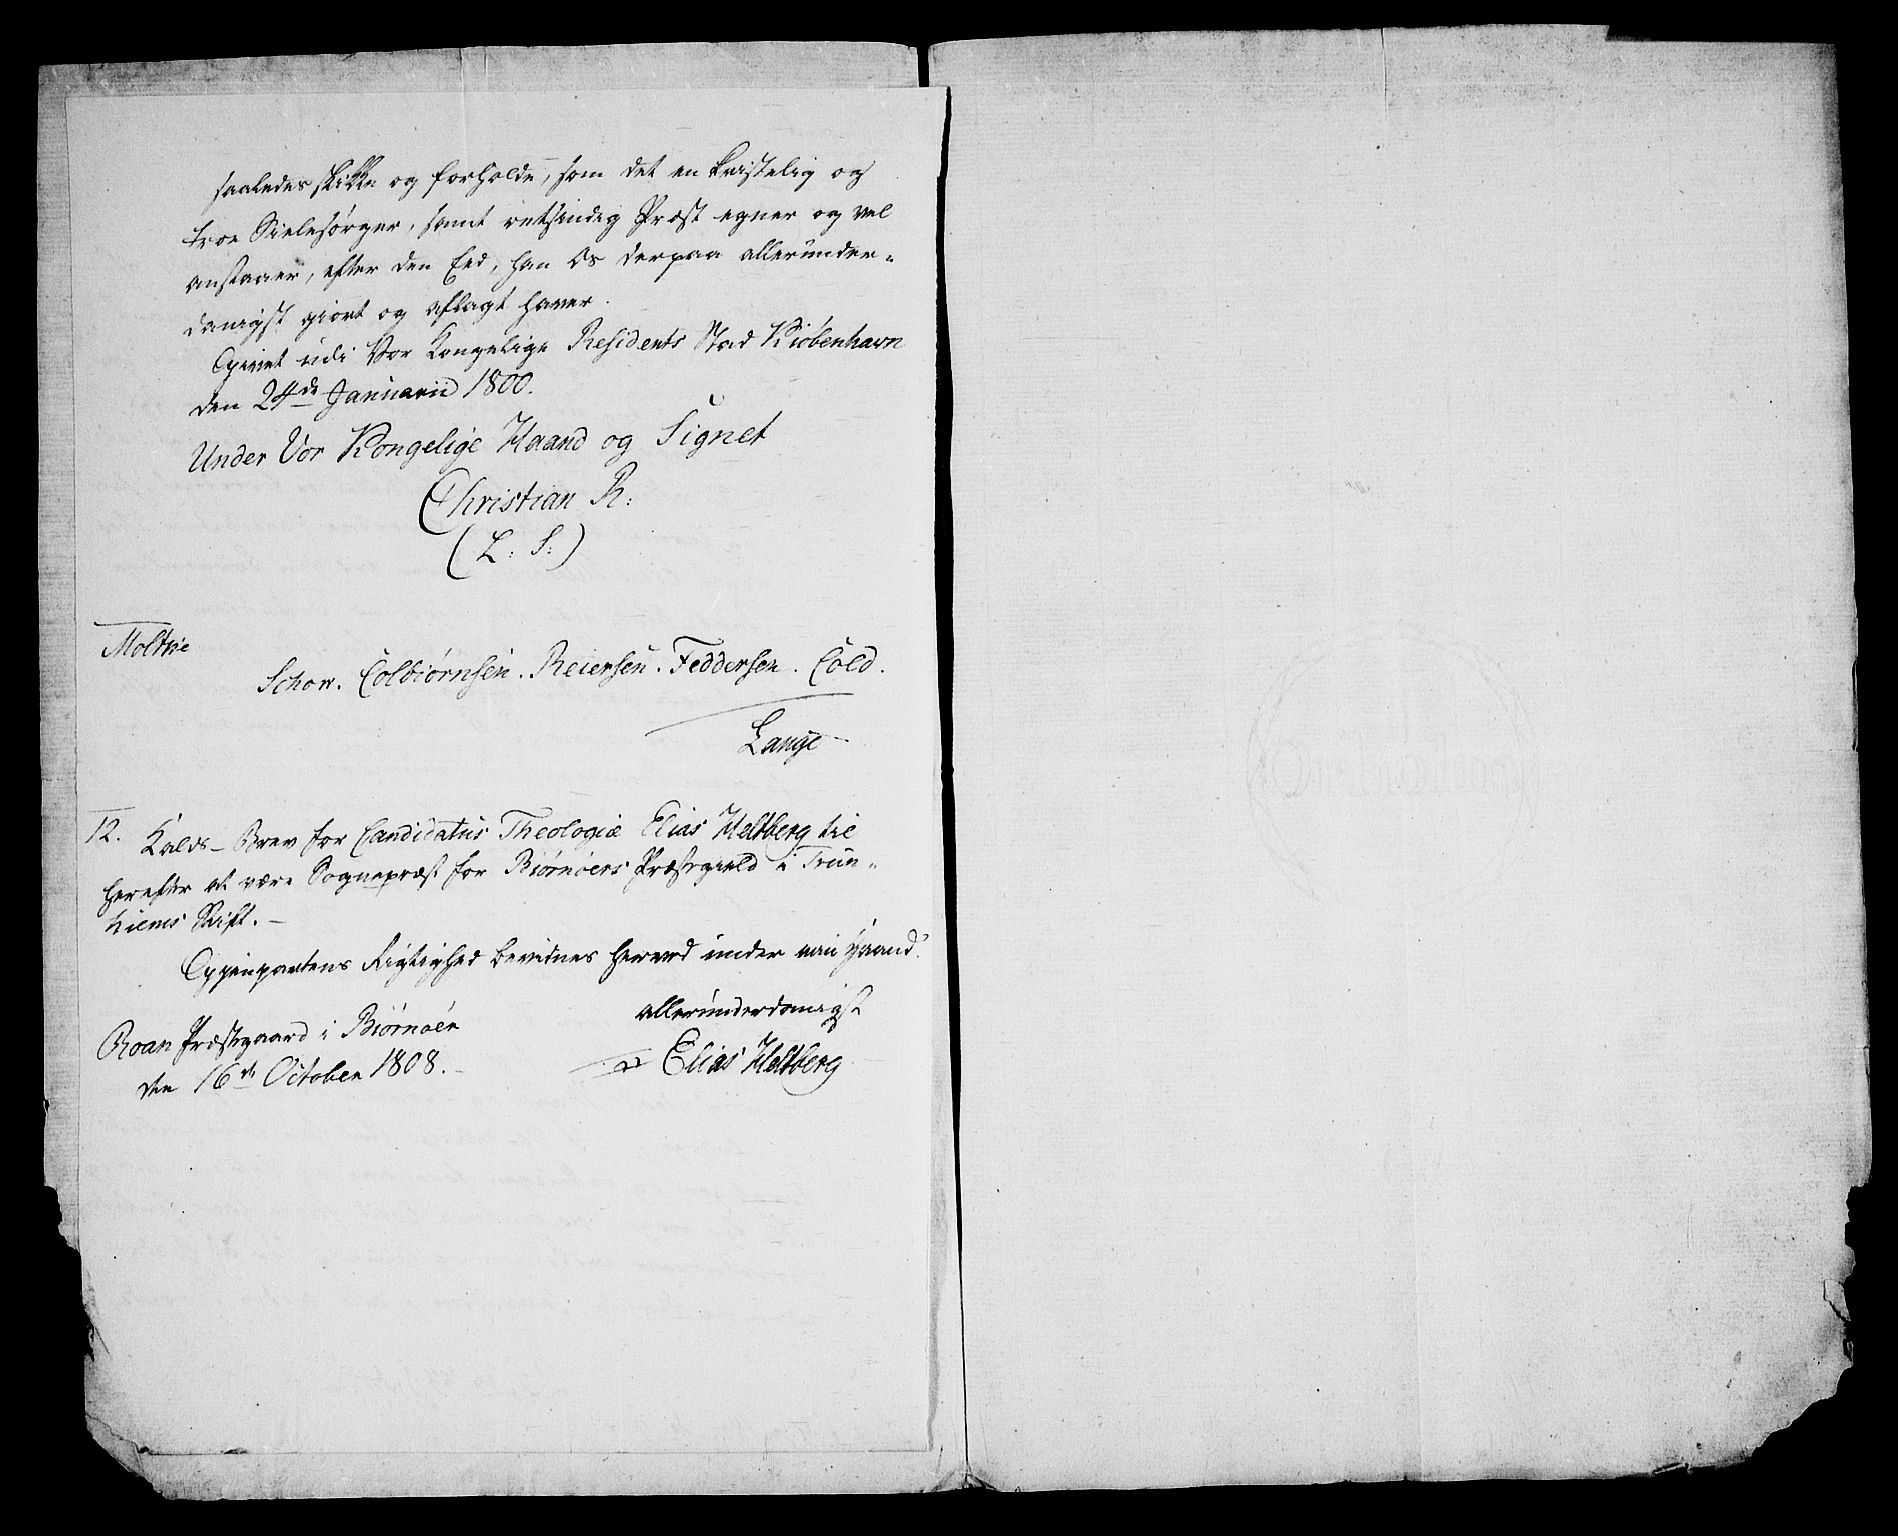 saaledes skikke og forholde, som det en Kristelig og
troe Sielesørger, samt retsindig Præst egner og vel
anstaaer, efter den Eed, han Os derpaa allerunder-
danigst giort og aflagt haver.
Givet udi Vor Kongelige Residents Stad Kiøbenhavn
den 24de Januarii 1800.
Under Vor Kongelige Haand og Signet
Christian R:
(L: S:)
Moltke
Schow. Colbiørnsen. Reiersen. Feddersen. Cold.
Lange
12. Kalds-Brev for Candidatus Theologiæ Elias Heltberg til
herefter at være Sognepræst for Biørnøers Præstegield i Trun-
hiems Stift.-
Gienpartens Rigtighed bevidnes herved under min Haand.
allerunderdanigst
Roan Præstegaard i Biørnøer
den 16de October 1808.
Elias Heltberg